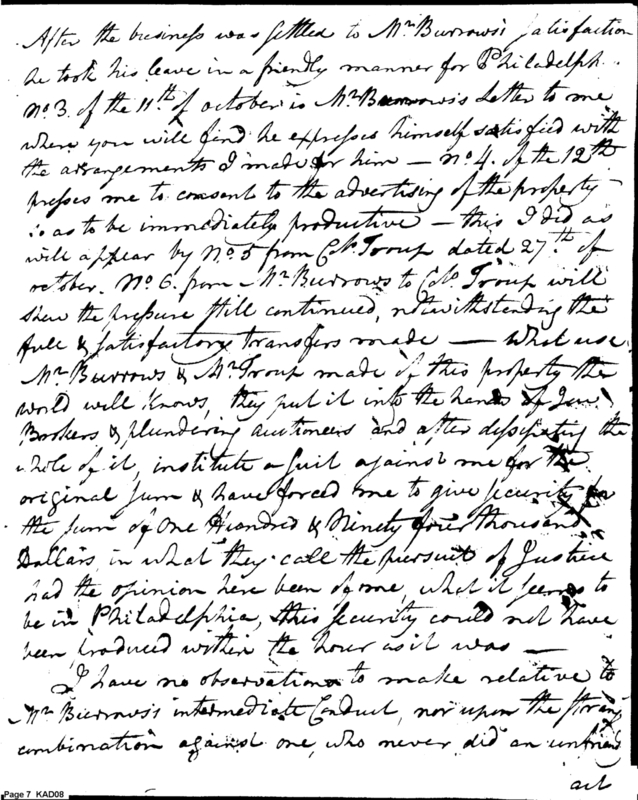 After the business was settled to Mr Burrows's satisfaction
he took his leave in a friendly manner for Philadelph
No 3. of the 11th of october is Mr Burrows's Letter to me
where you will find he expresses himself satisfied with
the arrangements I made for him — No 4. of the 12th
presses me to consent to the advertising of the property
so as to be immediately productive — this I did as
will appear by No 5 from Col. Troup dated 27th of
october. No 6. from Mr Burrows to Col. Troup will
shew the pressure still continued, notwithstanding the
full & satisfactory transfers made — what use
Mr Burrows & Mr Troup made of this property the
world well knows, they put it into the hands of Jew
Brokers & plundering auctioneers and after dissipating the
whole of it, institute a suit against me for the
original sum & have forced me to give security for
the sum of One Hundred & Ninety four thousand
Dollars in what they call the pursuit of Justice
had the opinion here been of me, what it seems to
be in Philadelphia, this security could not have
been produced within the hour as it was —
I have no observations to make relative to
Mr Burrows's intermediate Conduct, nor upon the strange
combination against one, who never did an unfriend
act
Page 7 KAD08